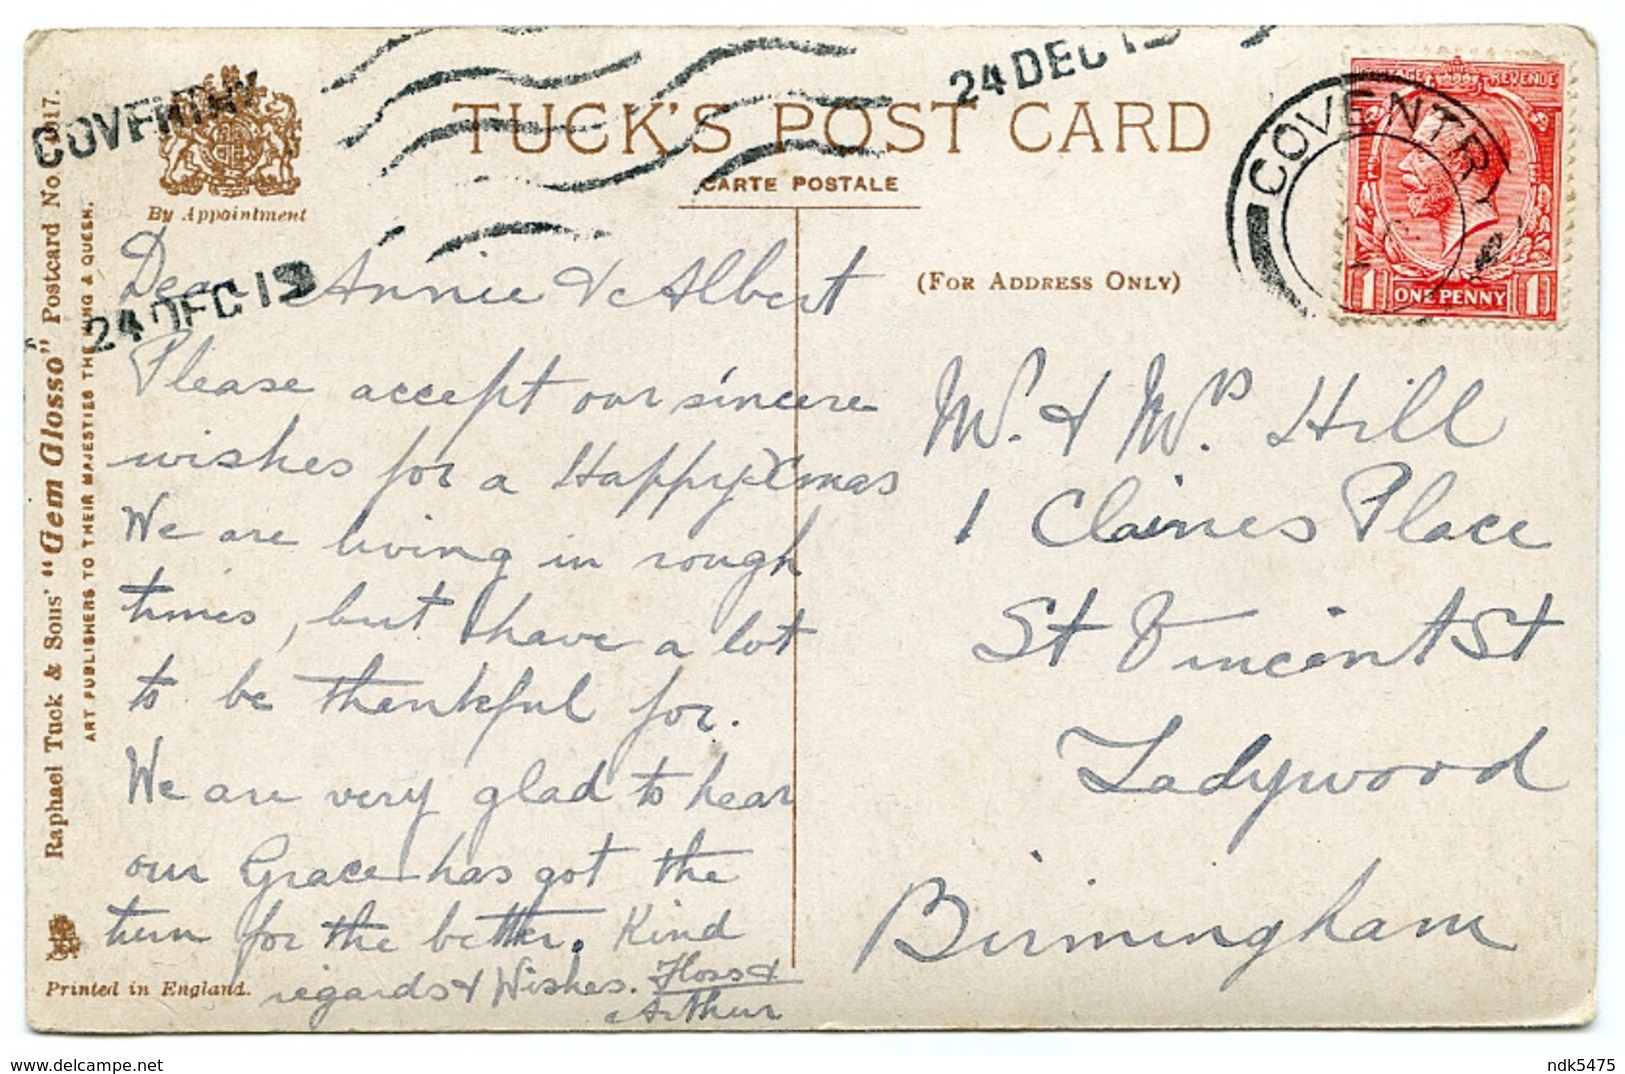 COVENTRY
24 DEC 19
TUCK'S POST CARD
CARTE POSTALE
By Appointment
(FOR ADDRESS ONLY)
COVENTRY
POSTAGE REVENUE
1 ONE PENNY 1
24 DEC 19
Raphael Tuck & Sons' "Gem Glosso" Postcard No.
ART PUBLISHERS TO THEIR MAJESTIES THE KING & QUEEN.
Dear Annie & Albert
Please accept our sincere
wishes for a Happy Xmas
We are living in rough
times, but have a lot
to be thankful for.
We are very glad to hear
our Grace has got the
turn for the better. Kind
regards & Wishes. Floss &
Arthur
Mr. & Mrs. Hill
1 Claines Place
St Vincent St
Ladywood
Birmingham
Printed in England.
delcampe.net
ndk5475